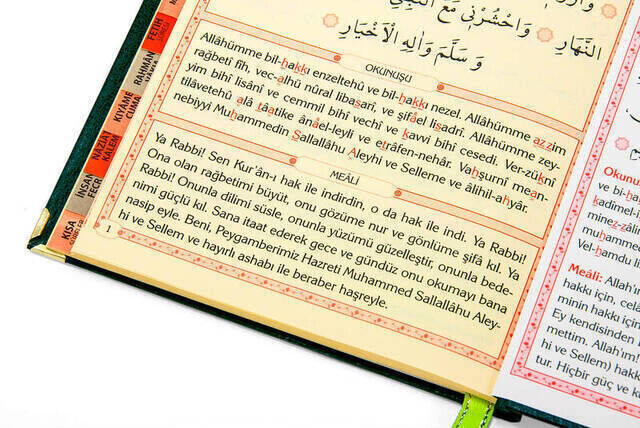 النَّهَارِ وَاحْشُرْنِي مَعَ النَّبِيِّ
وَسَلَّمَ وَاٰلِهِ الْاَخْيَارِ
OKUNUŞU
Allâhümme bil-hakkı enzeltehû ve bil-hakkı nezel. Allâhümme azzim
rağbetî fîh, vec-alhü nûral libasarî, ve şifâel lisadrî. Allâhümme zey-
yim bihî lisânî ve cemmil bihî vechî ve kavvi bihî cesedî. Ver-zükni
tilâvetehû alâ tâatike ânâel-leyli ve etrâfen-nehâr. Vahşurnî mean-
nebiyyi Muhammedin Sallallâhu Aleyhi ve Selleme ve âlihil-ahyâr.
MEÂLİ
Ya Rabbi! Sen Kur'ân-ı hak ile indirdin, o da hak ile indi. Ya Rabbi!
Ona olan rağbetimi büyüt, onu gözüme nur ve gönlüme şifâ kıl. Ya
Rabbi! Onunla dilimi süsle, onunla yüzümü güzelleştir, onunla bede-
nimi güçlü kıl. Sana itaat ederek gece ve gündüz onu okumayı bana
nasip eyle. Beni, Peygamberimiz Hazreti Muhammed Sallallâhu Aley-
hi ve Sellem ve hayırlı ashabı ile beraber haşreyle.
1
FETİH
RAHMÂN
KIYÂME
CUMA
NÂZİÂT
KALEM
İNSAN
FECR
KISA
Okunu
ve bi-h
kadîmel
minez-zâ
muham
Vel-hamdu l
Meâli: Allah'ı
hakkı için, cel
minin hakkı iç
Ey kendisinden
mettim. Allah'ım!
hi ve Sellem) hakk
tur. Hiçbir güç ve k